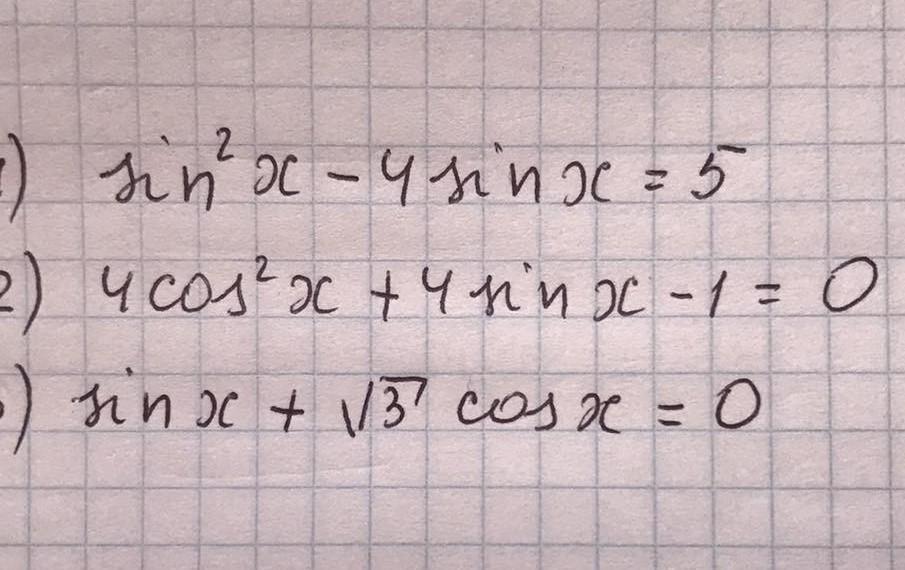 1) sin² x - 4 sin x = 5
2) 4 cos² x + 4 sin x - 1 = 0
) sin x + √3 cos x = 0